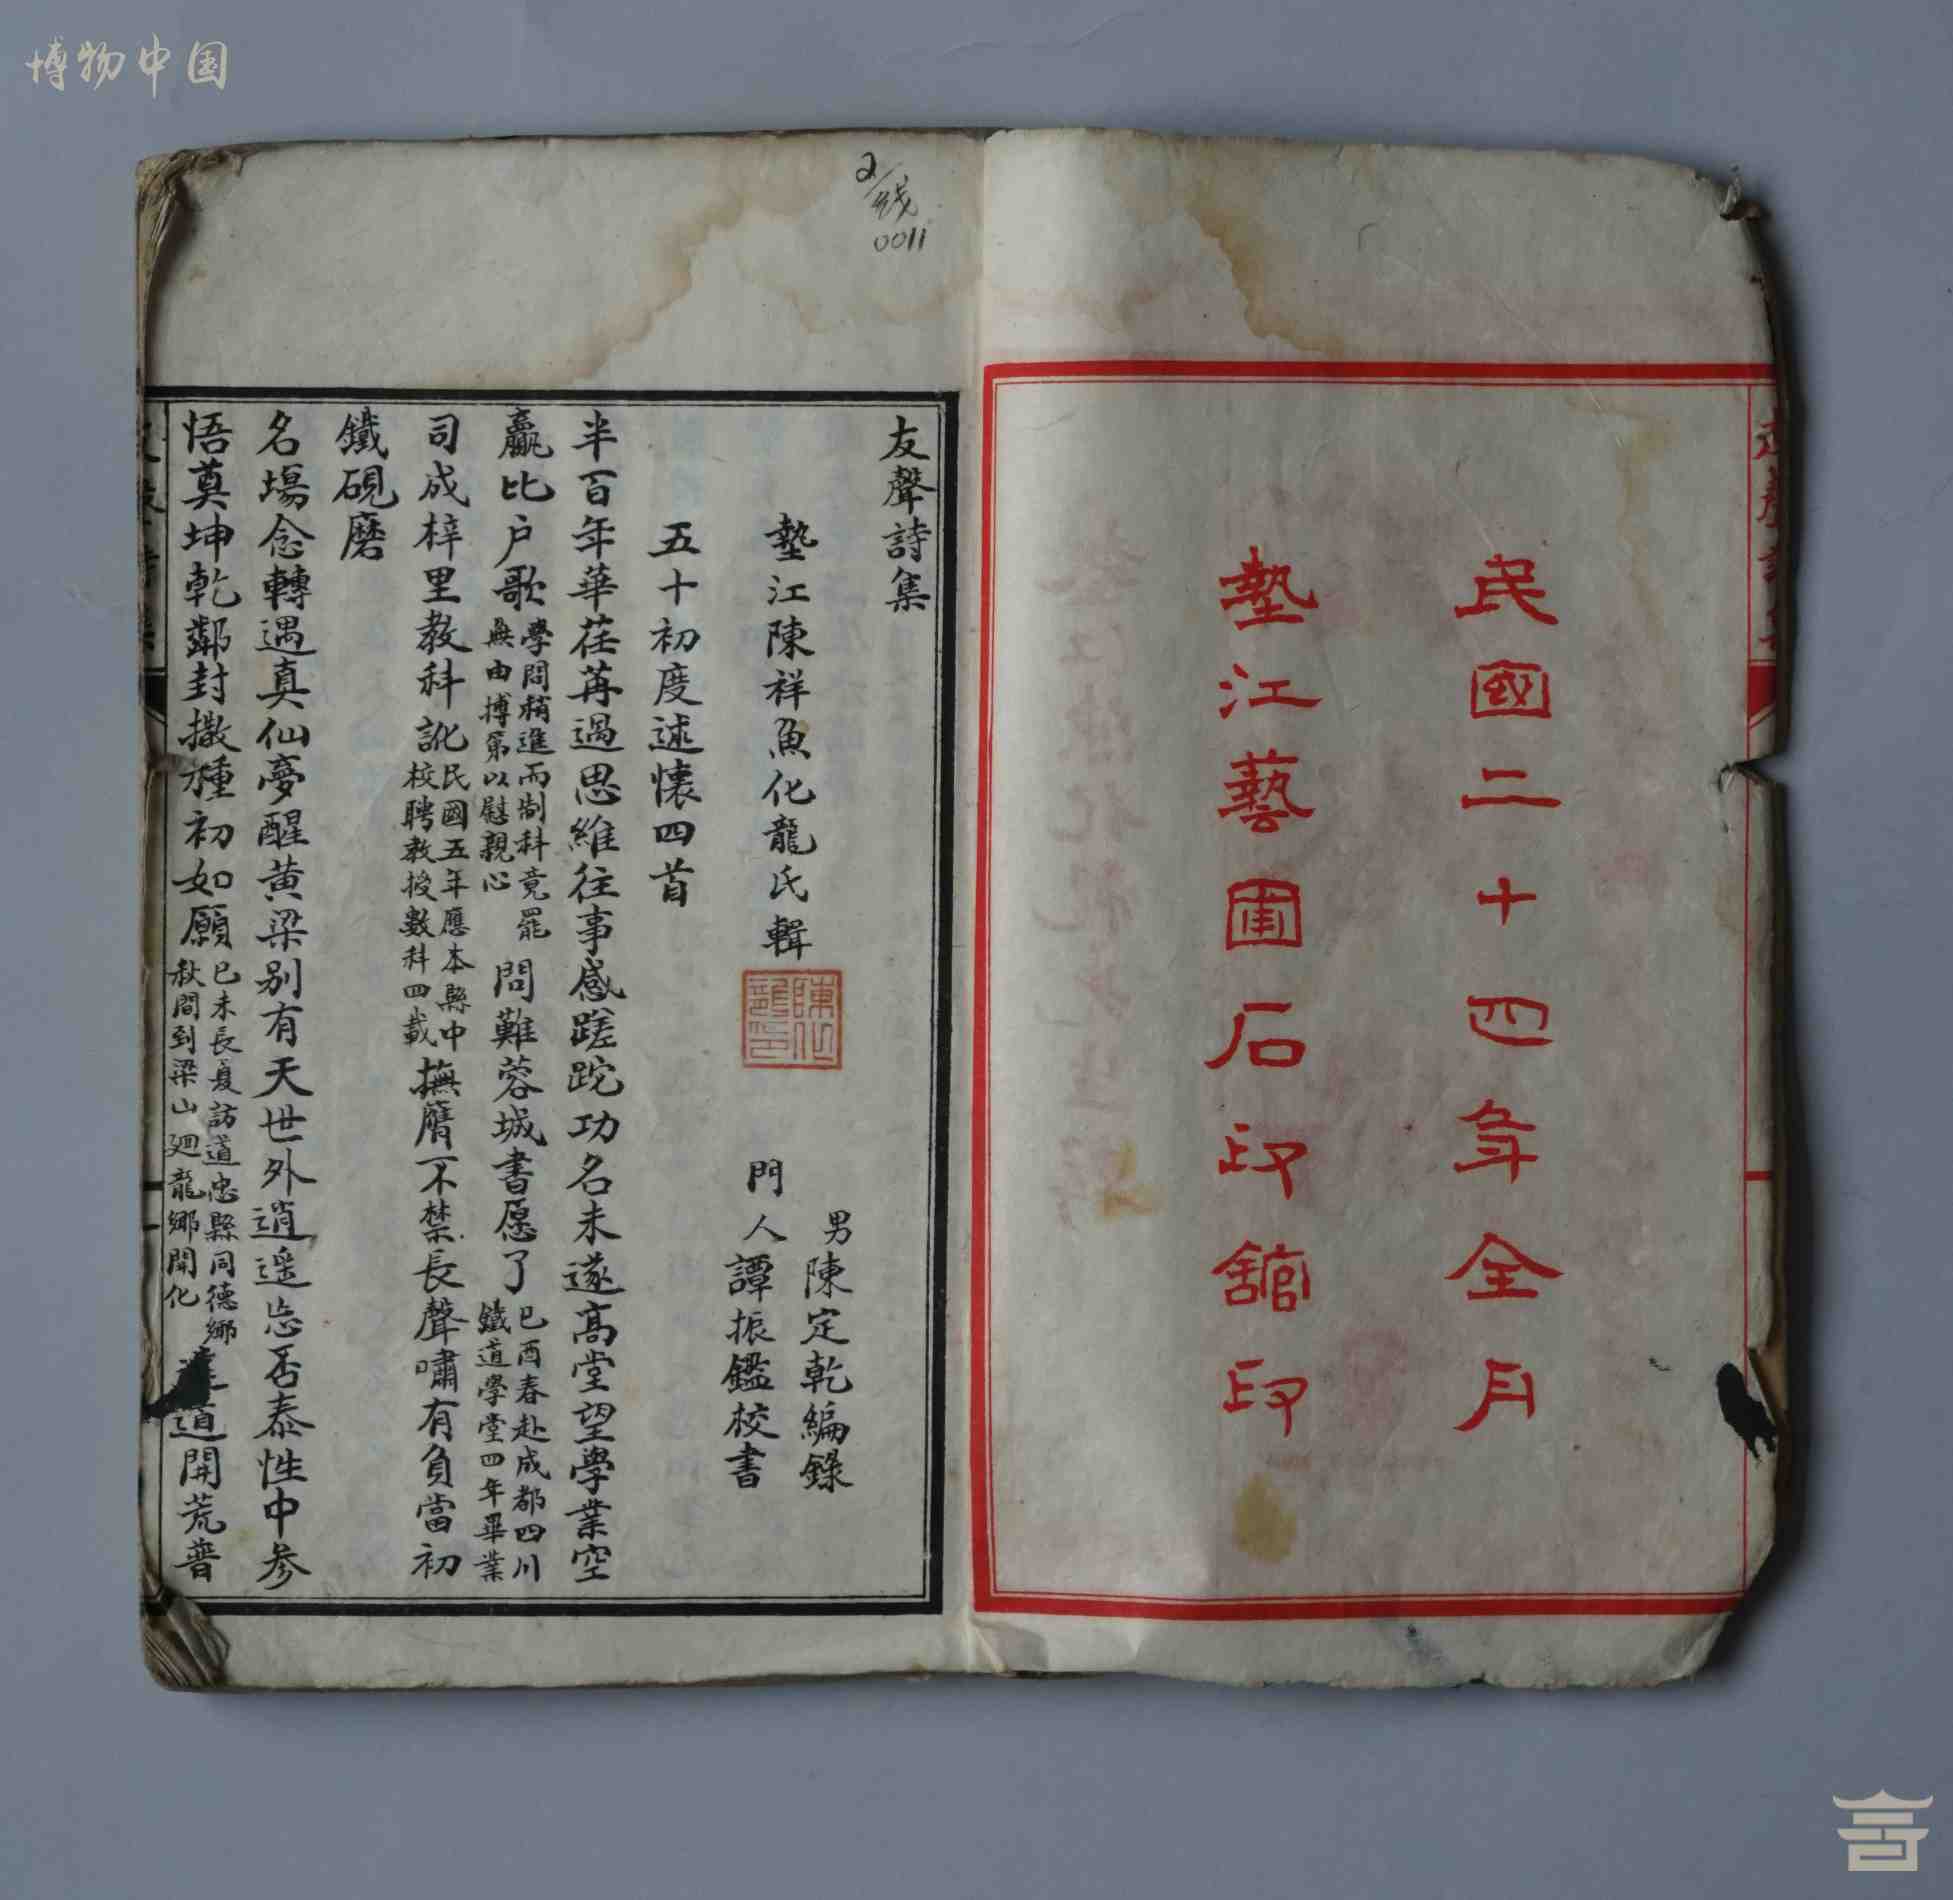 博物中国
民國二十四年全月
墊江藝圃石印館印
2/线
0011
友聲詩集
墊江陳祥魚化龍氏輯
陳化龍印
男陳定乾編錄
門人譚振鑑校書
五十初度述懷四首
半百年華荏苒過思維往事感蹉跎功名未遂高堂望學業空
贏比户歌學問稍進而制科竟罷無由博第以慰親心問難蓉城書愿了已酉春赴成都四川鐵道學堂四年畢業
司成梓里教科訛民國五年應本縣中校聘教授數科四載撫膺不禁長聲嘯有負當初
鐵硯磨
名場念轉遇真仙夢醒黄梁别有天世外逍遥忘否泰性中参
悟奠坤乾鄰封撒種初如願已未長夏訪道忠縣同德鄉秋間到梁山廻龍鄉開化道開荒普